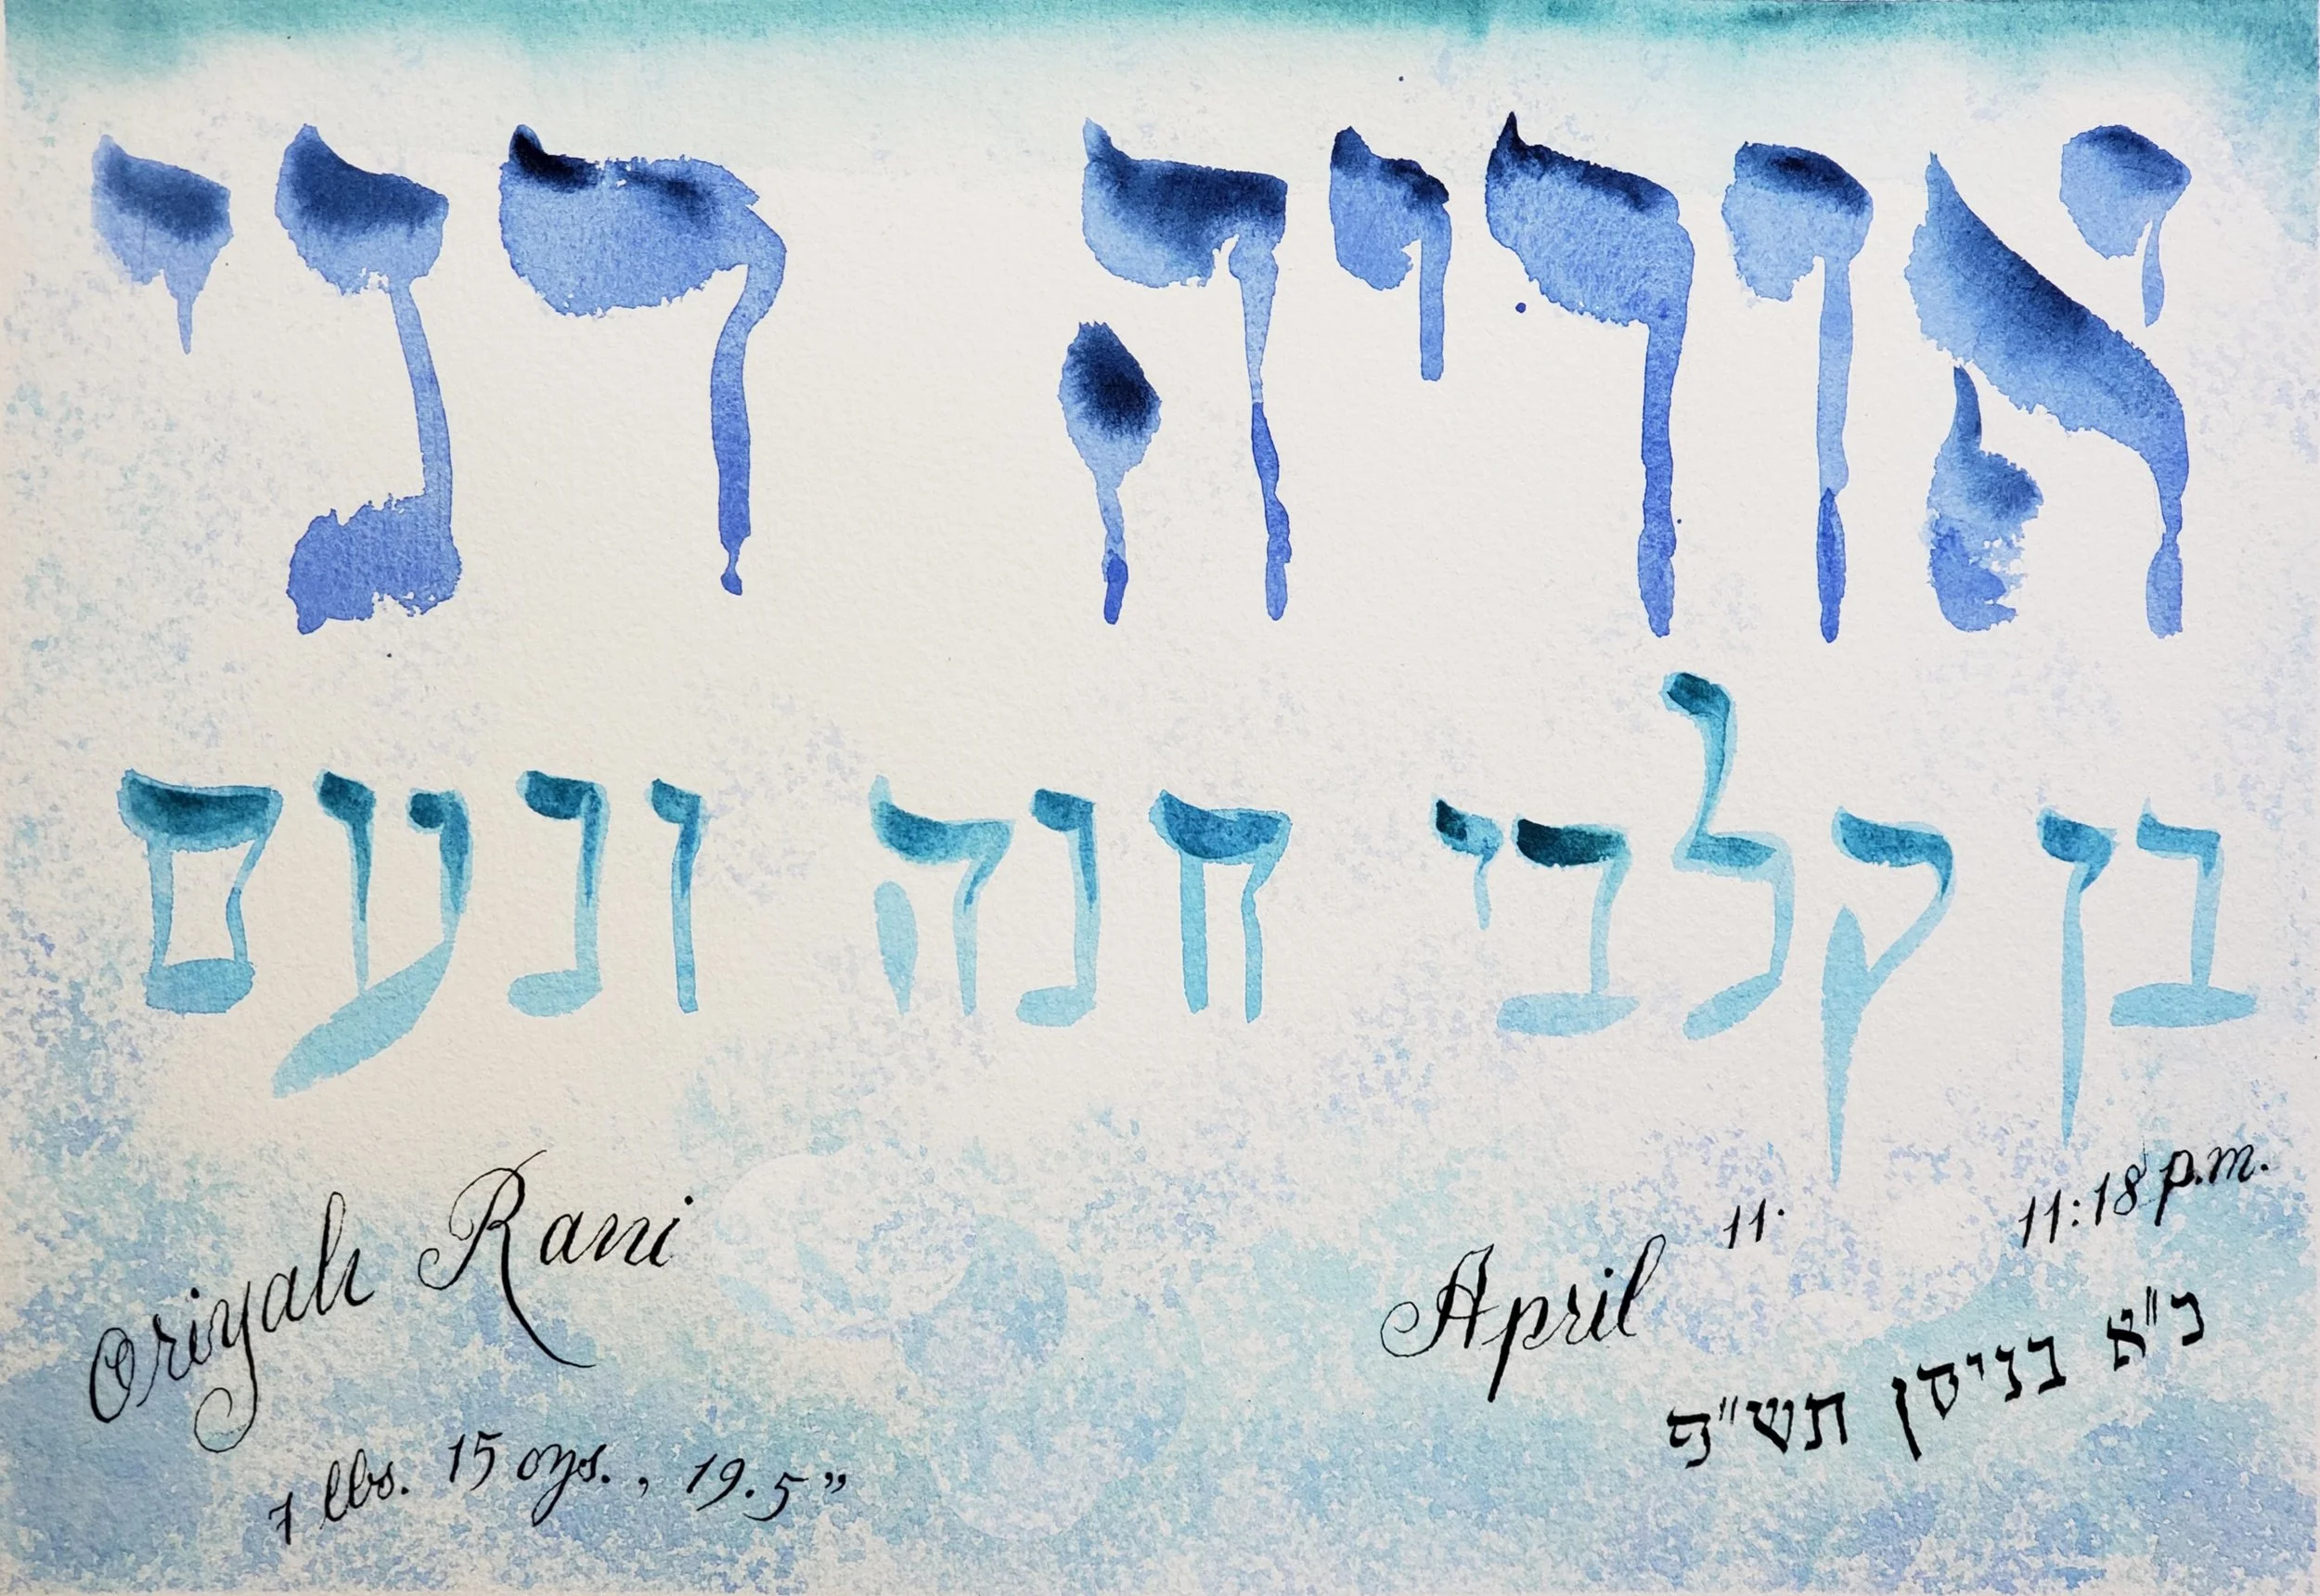 אוריה רני
בן קלבי חנה ונעם
Oriyah Rani
7 lbs. 15 ozs., 19.5"
April 11. 11:18 p.m.
כ"א בניסן תש"פ